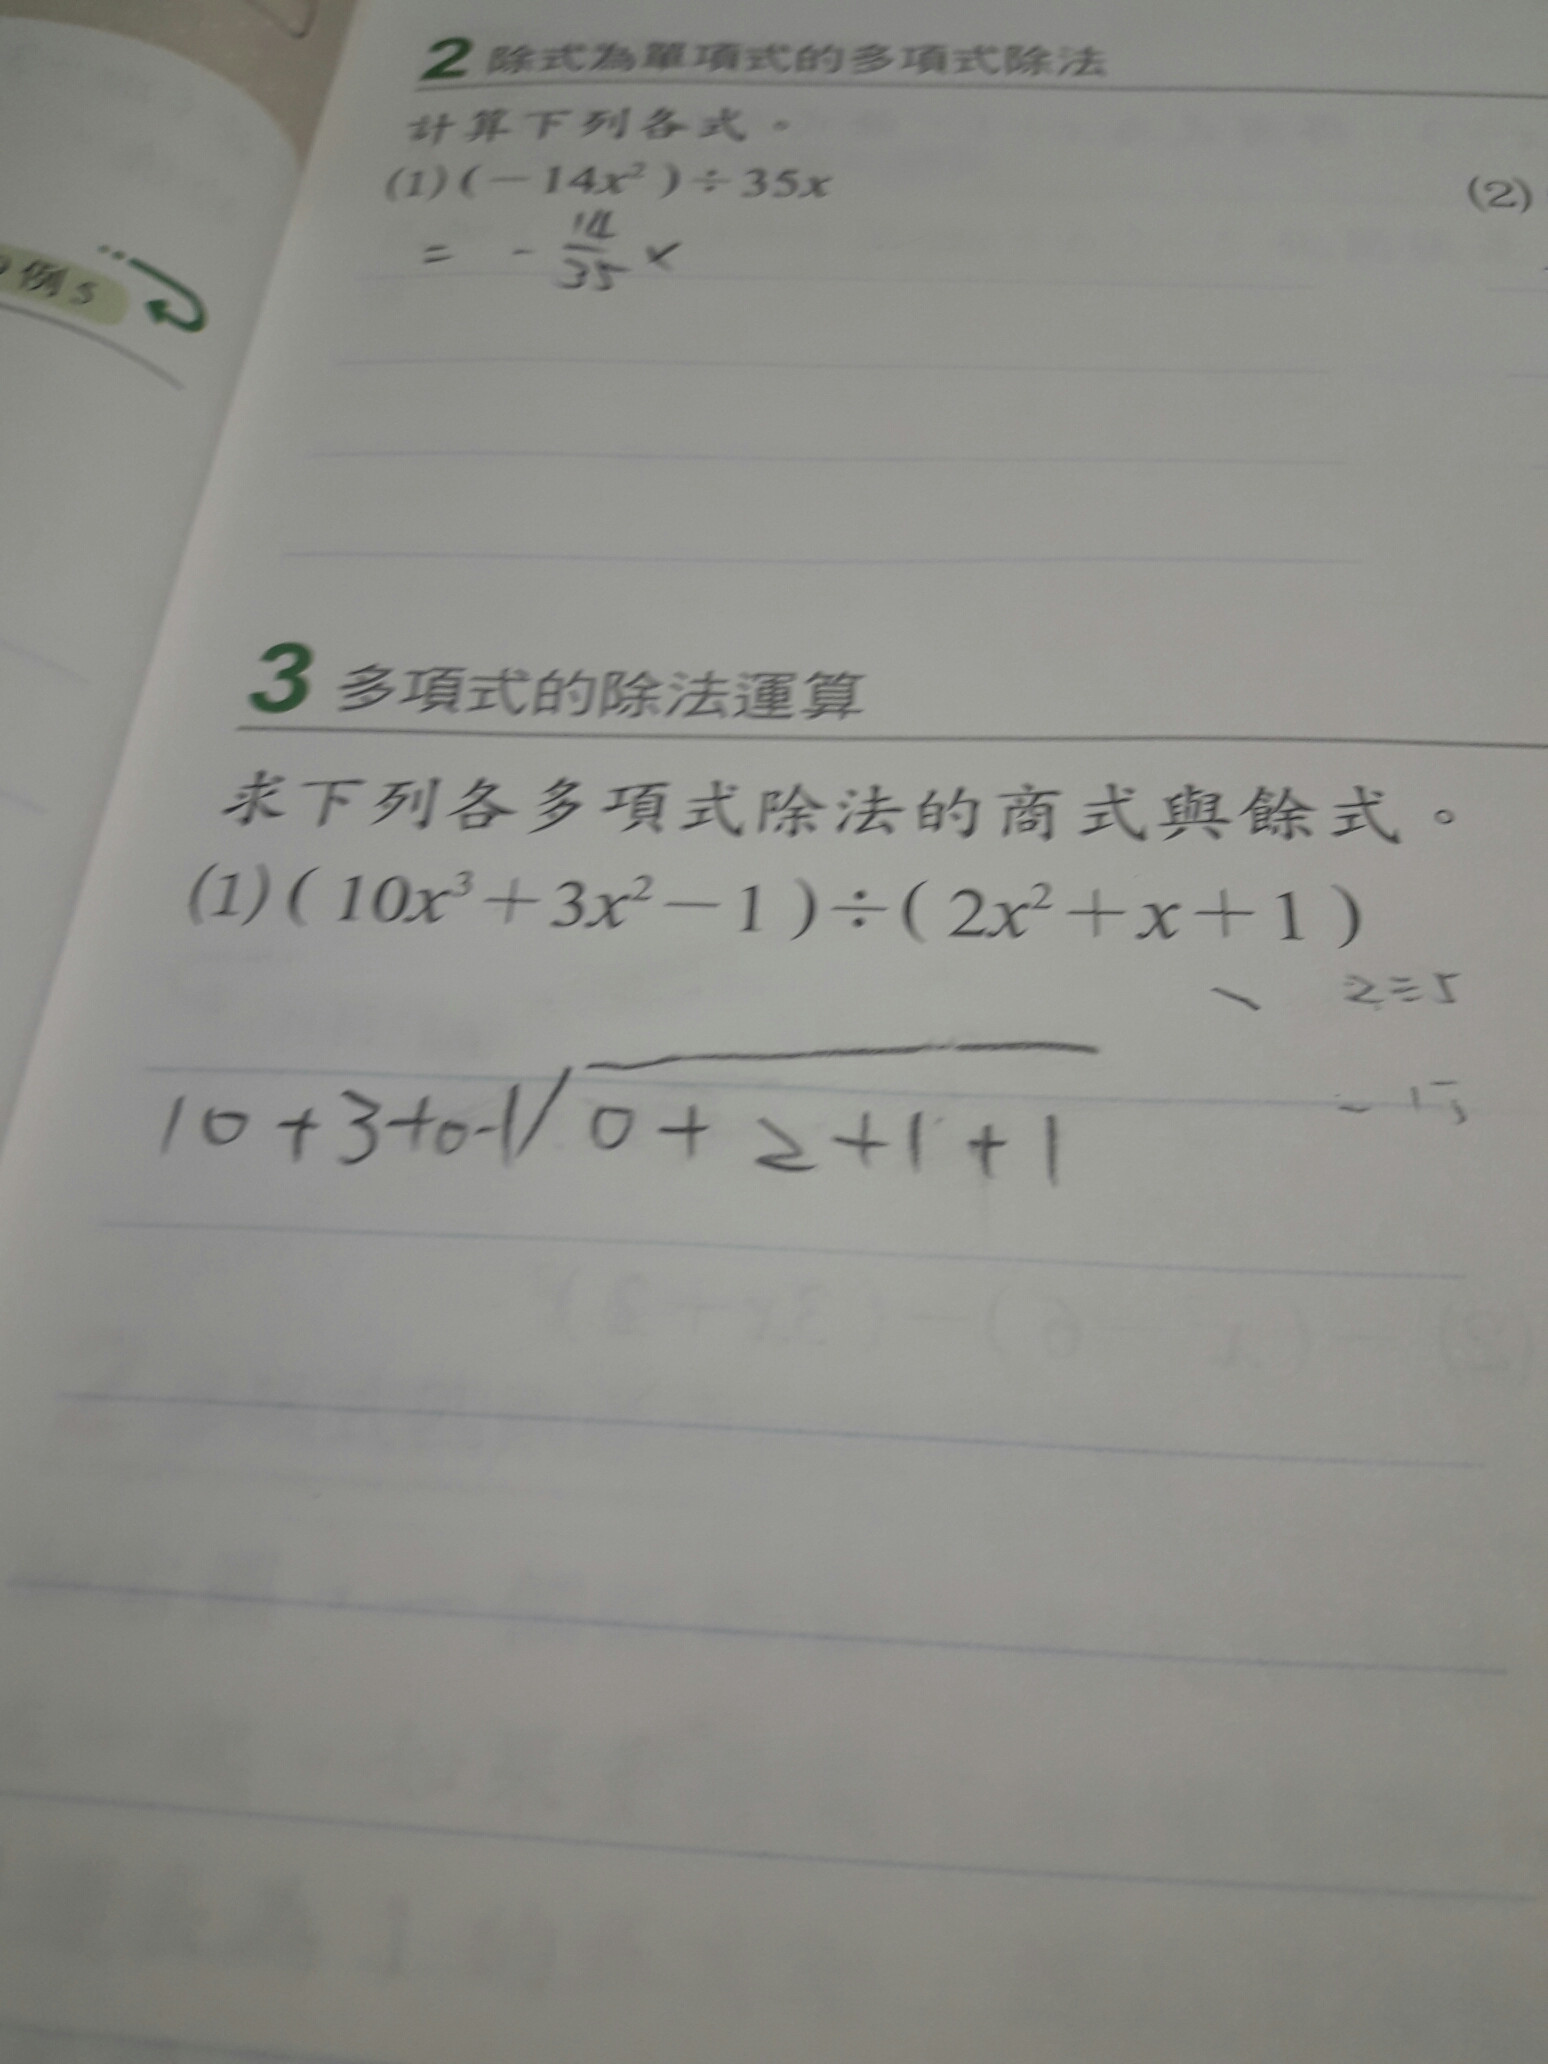 2 除式為單項式的多項式除法
計算下列各式。
(1)(－14x²)÷35x
(2)
= - 14/35 x
例5
3 多項式的除法運算
求下列各多項式除法的商式與餘式。
(1)(10x³＋3x²－1)÷(2x²＋x＋1)
10+3+0-1√0+2+1+1